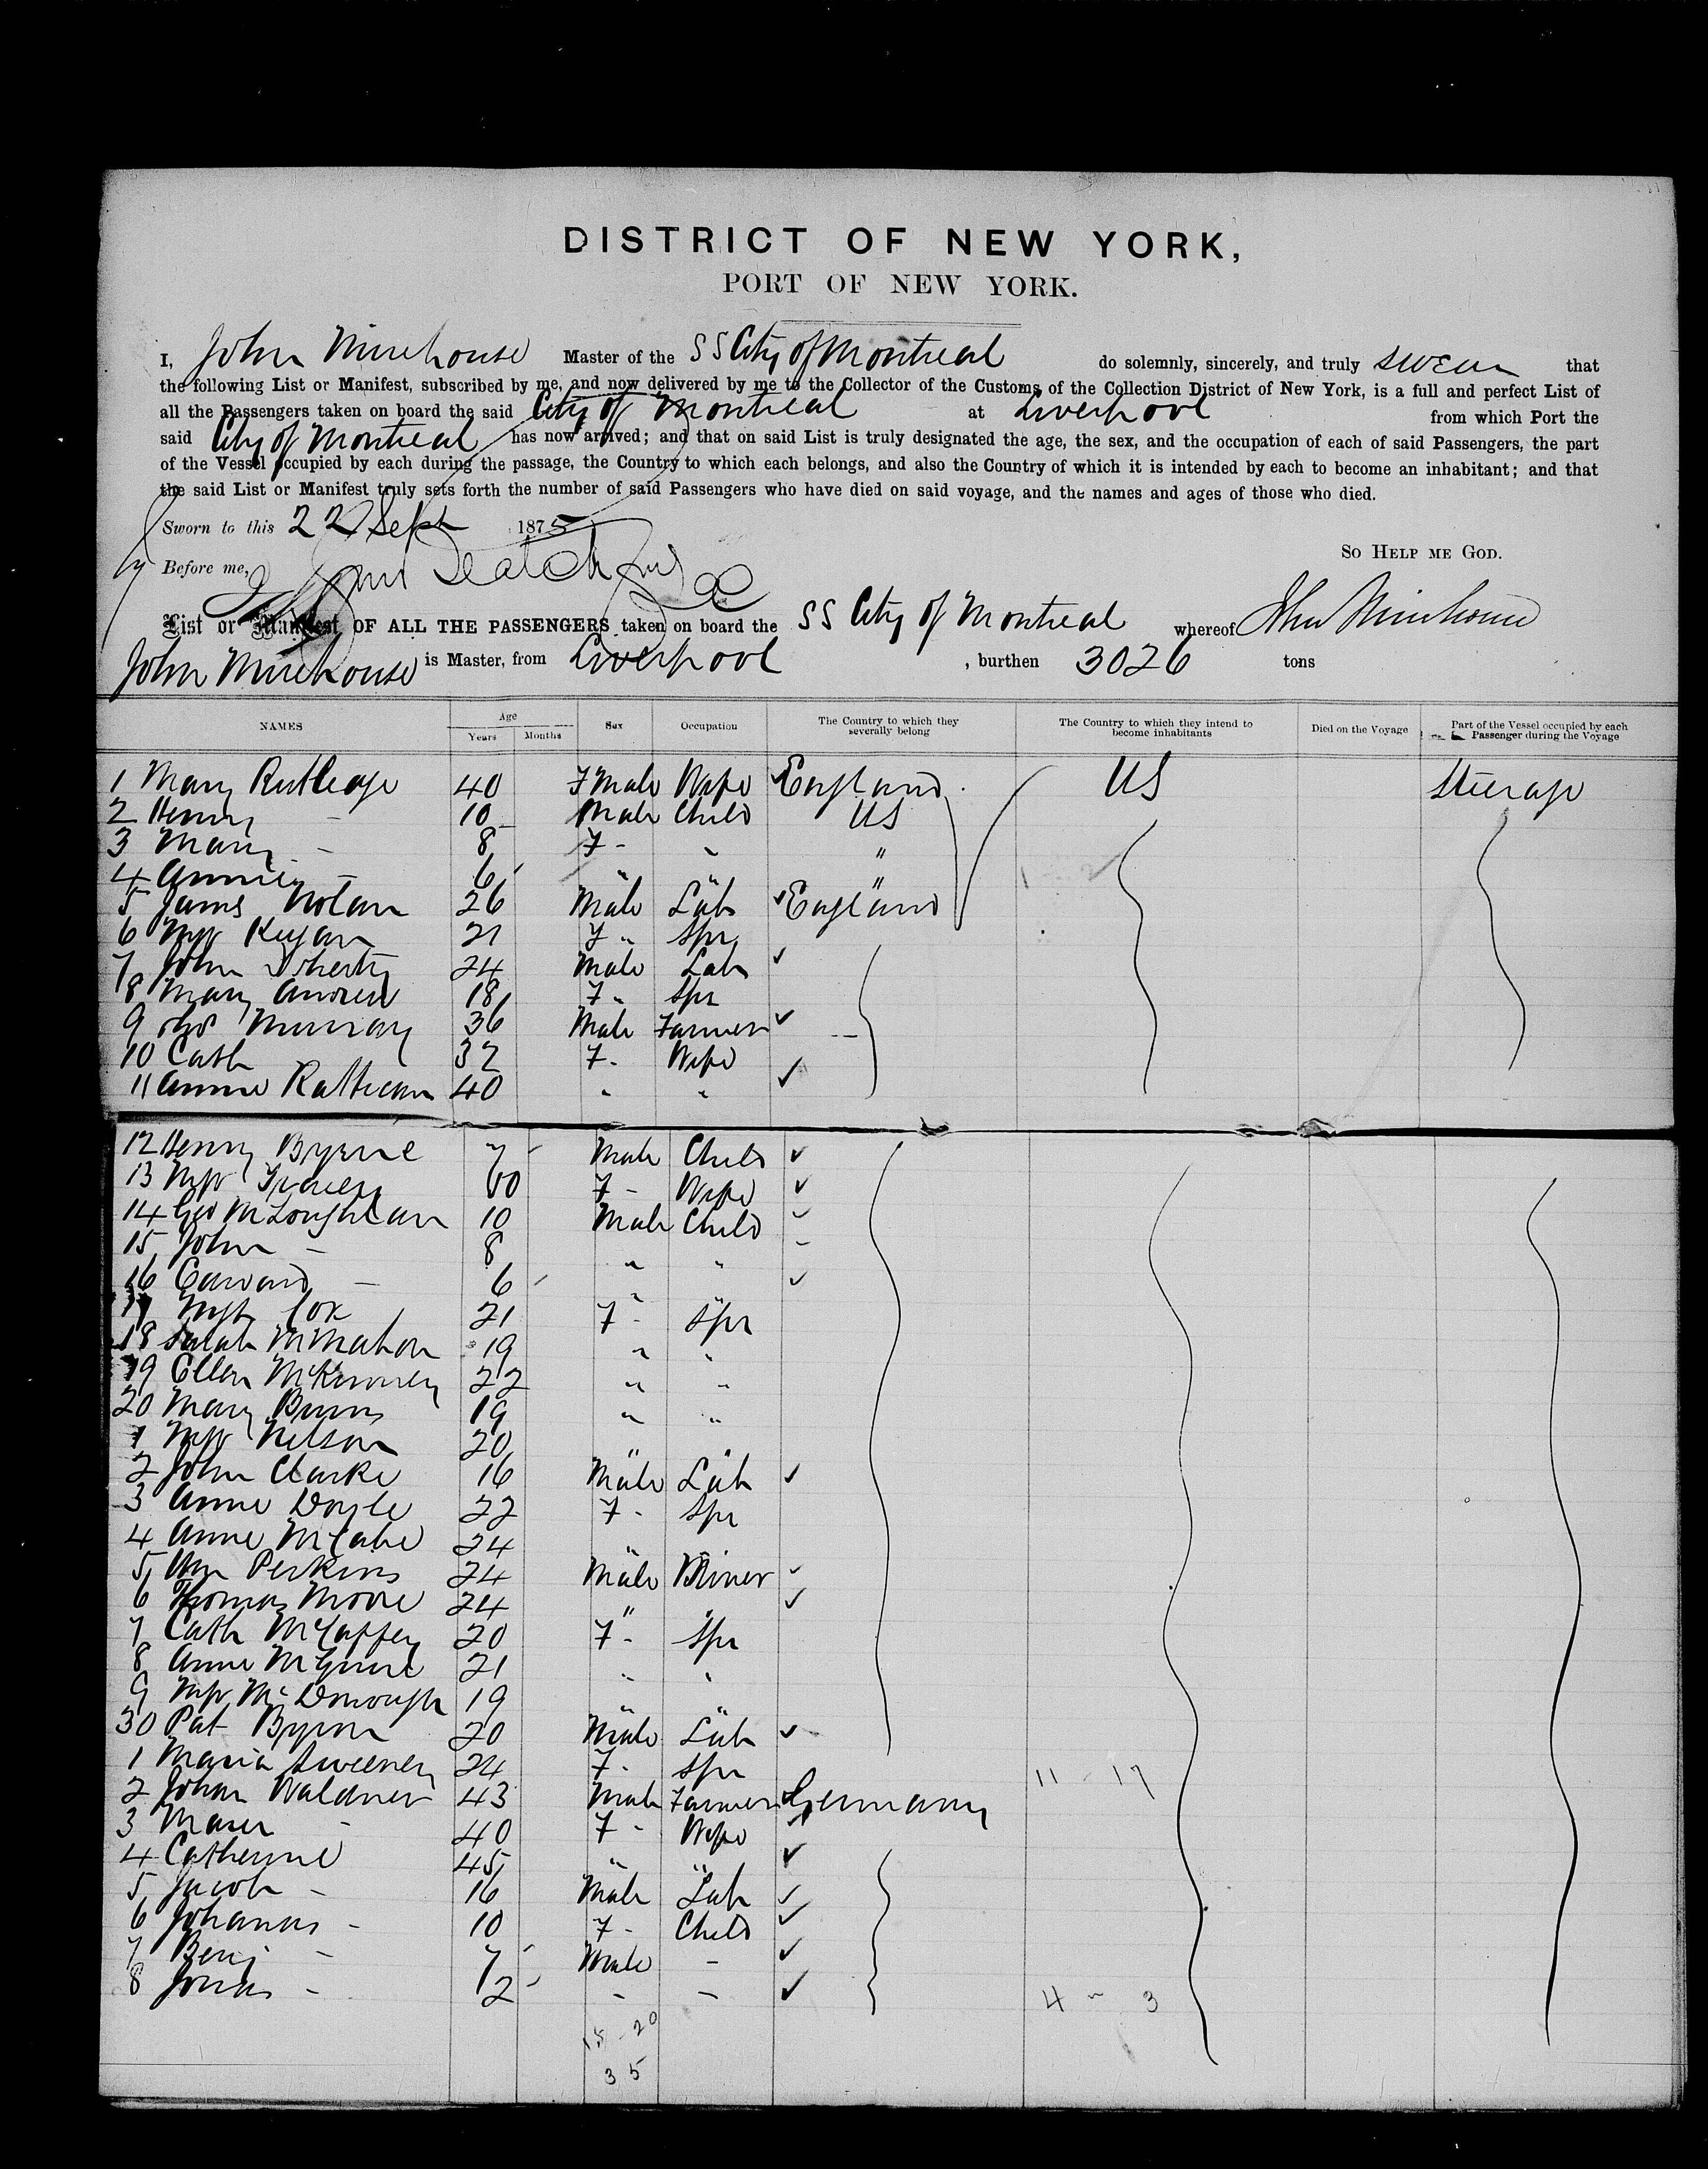 DISTRICT OF NEW YORK,
PORT OF NEW YORK.
I, John Mirehouse Master of the SS City of Montreal do solemnly, sincerely, and truly swear that
the following List or Manifest, subscribed by me, and now delivered by me to the Collector of the Customs of the Collection District of New York, is a full and perfect List of
all the Passengers taken on board the said City of Montreal at Liverpool from which Port the
said City of Montreal has now arrived; and that on said List is truly designated the age, the sex, and the occupation of each of said Passengers, the part
of the Vessel occupied by each during the passage, the Country to which each belongs, and also the Country of which it is intended by each to become an inhabitant; and that
the said List or Manifest truly sets forth the number of said Passengers who have died on said voyage, and the names and ages of those who died.
Sworn to this 22 Sept 1875
So Help me God.
Before me,
List or Manifest OF ALL THE PASSENGERS taken on board the SS City of Montreal whereof John Mirehouse
John Mirehouse is Master, from Liverpool , burthen 3026 tons
NAMES Age Years Months Sex Occupation The Country to which they severally belong The Country to which they intend to become inhabitants Died on the Voyage Part of the Vessel occupied by each Passenger during the Voyage
1 Mary Rutledge 40 F Male Wife England US Steerage
2 Henry - 10 Male Child US
3 Mary - 8 F - " "
4 Annie - 6 " " "
5 James Nolan 26 Male Lab England
6 Mgt Keegan 21 F " Spr
7 John Doherty 24 Male Lab
8 Mary Andrew 18 F " Spr
9 Murray 36 Male Farmer
10 Cath 32 F - Wife
11 Annie Rattican 40 " "
12 Henry Byrne 7 Male Child
13 Mgt 60 F - Wife
14 Geo McLoughlan 10 Male Child
15 John - 8 " "
16 Edward - 6 " "
17 Mgt Cox 21 F - Spr
18 Sarah McMahon 19 " "
19 Ellen McKinney 22 " "
20 Mary Burns 19 " "
1 Mgt Nelson 20 " "
2 John Clarke 16 Male Lab
3 Anne Doyle 22 F - Spr
4 Anne McCabe 24 " "
5 Wm Perkins 24 Male Miner
6 Thomas Moore 24 " "
7 Cath McCaffey 20 F - Spr
8 Anne McGuire 21 " "
9 Mgt McDonough 19 " "
30 Pat Byrne 20 Male Lab
1 Maria Sweeney 24 F - Spr 11 - 17
2 Johan Waldner 43 Male Farmer Germany
3 - 40 F - Wife
4 Catherine 45 " "
5 Jacob - 16 Male Lab
6 Johannes - 10 F - Child
7 Benj - 7 Male -
8 Jonas - 2 - - 4 - 3
15 - 20
35